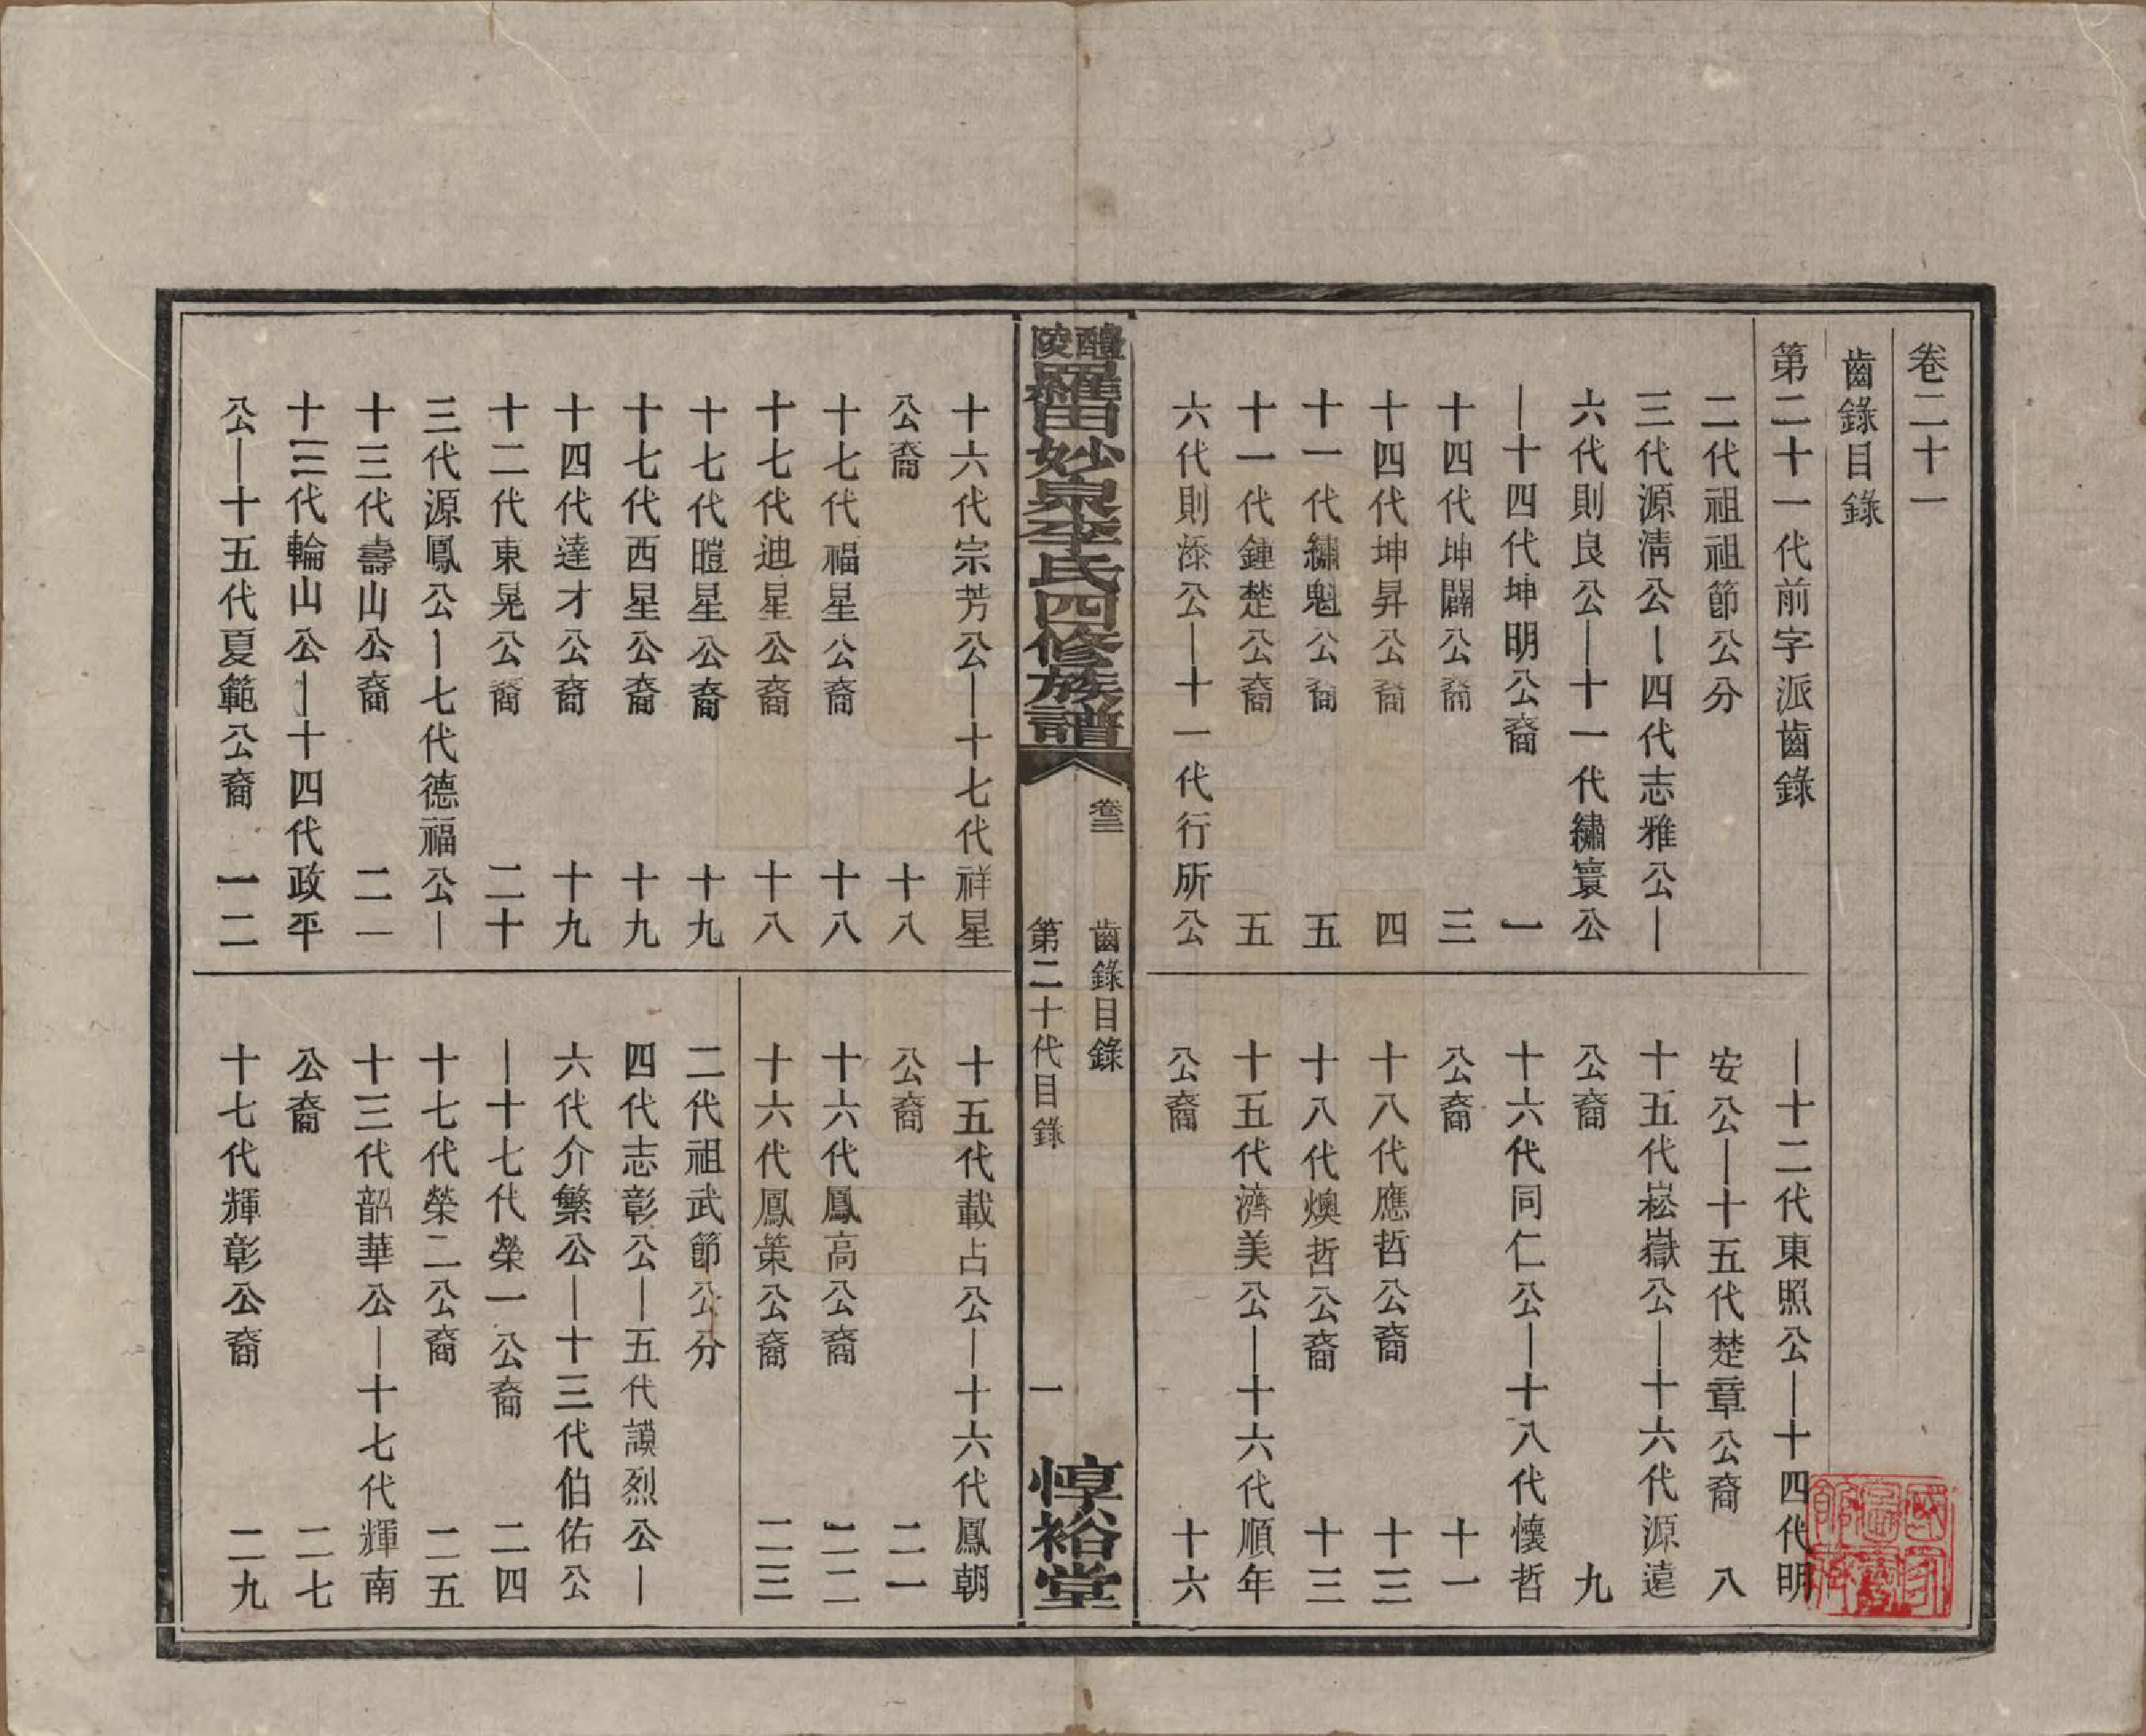 卷二十一
齒錄目錄
第二十一代前字派齒錄
二代祖祖節公分
三代源淸公—四代志雅公—
六代則良公—十一代繡寰公
—十四代坤明公裔 一
十四代坤闢公裔 三
十四代坤昇公裔 四
十一代繡魁公裔 五
十一代鍾楚公裔 五
六代則泰公—十一代行所公
—十二代東照公—十四代明
安公—十五代楚章公裔 八
十五代崧嶽公—十六代源遠
公裔 九
十六代同仁公—十八代懷哲
公裔 十一
十八代應哲公裔 十三
十八代燠哲公裔 十三
十五代濟美公—十六代順年
公裔 十六
醴陵羅田妙泉李氏四修族譜
卷三
齒錄目錄
第二十代目錄
一
惇裕堂
十六代宗芳公—十七代祥星
公裔 十八
十七代福星公裔 十八
十七代迪星公裔 十八
十七代暟星公裔 十九
十七代西星公裔 十九
十四代達才公裔 十九
十二代東晃公裔 二十
三代源鳳公—七代德福公—
十三代壽山公裔 二一
十三代輪山公—十四代政平
公—十五代夏範公裔 二一
十五代載占公—十六代鳳朝
公裔 二一
十六代鳳高公裔 二二
十六代鳳策公裔 二三
二代祖武節公分
四代志彰公—五代謨烈公—
六代介繁公—十三代伯佑公
—十七代榮一公裔 二四
十七代榮二公裔 二五
十三代韶華公—十七代輝南
公裔 二七
十七代輝彰公裔 二九